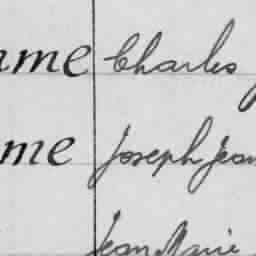 ame Charles
me Joseph Jean
Jean Marie